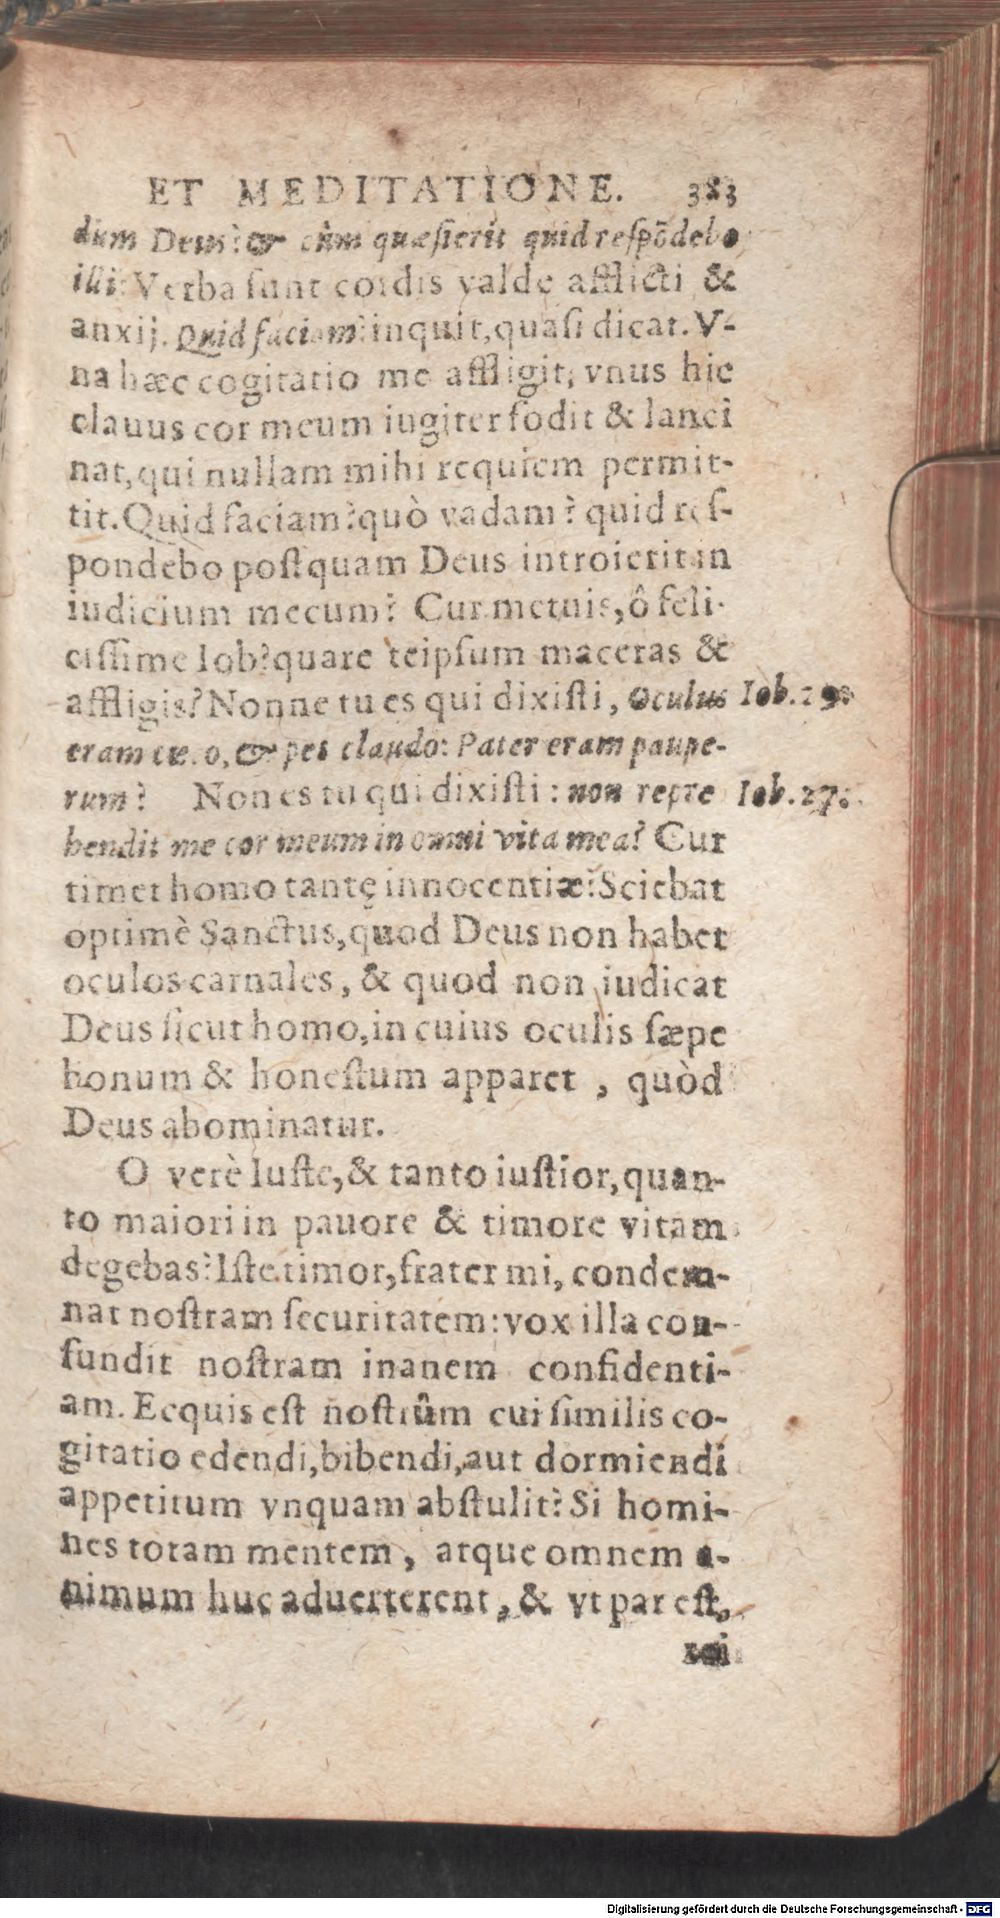 ET MEDITATIONE. 383
dium Deus? & cùm quæsierit quid respõdebo
illi? Verba sunt cordis valde afflicti &
anxij. Quid faciam? inquit, quasi dicat. V-
na hæc cogitatio me affligit, vnus hic
clauus cor meum iugiter fodit & lanci
nat, qui nullam mihi requiem permit-
tit. Quid faciam? quò vadam? quid ref-
pondebo postquam Deus introierit in
iudicium mecum? Cur metuis, ô feli-
cissime Iob? quare teipsum maceras &
affligis? Nonne tu es qui dixisti, Oculus Iob. 29.
eram cæ. o, & pes claudo: Pater eram paupe-
rum? Non es tu qui dixisti: non repre Iob. 27.
hendit me cor meum in omni vita mea? Cur
timet homo tantę innocentiæ? Sciebat
optimè Sanctus, quod Deus non habet
oculos carnales, & quod non iudicat
Deus sicut homo, in cuius oculis sæpe
bonum & honestum apparet, quòd
Deus abominatur.
O verè Iuste, & tanto iustior, quan-
to maiori in pauore & timore vitam
degebas? Iste timor, frater mi, condem-
nat nostram securitatem: vox illa con-
fundit nostram inanem confidenti-
am. Ecquis est nostrûm cui similis co-
gitatio edendi, bibendi, aut dormiendi
appetitum vnquam abstulit? Si homi-
nes totam mentem, atque omnem a-
nimum huc aduerterent, & vt par est,
rei
Digitalisierung gefördert durch die Deutsche Forschungsgemeinschaft - DFG